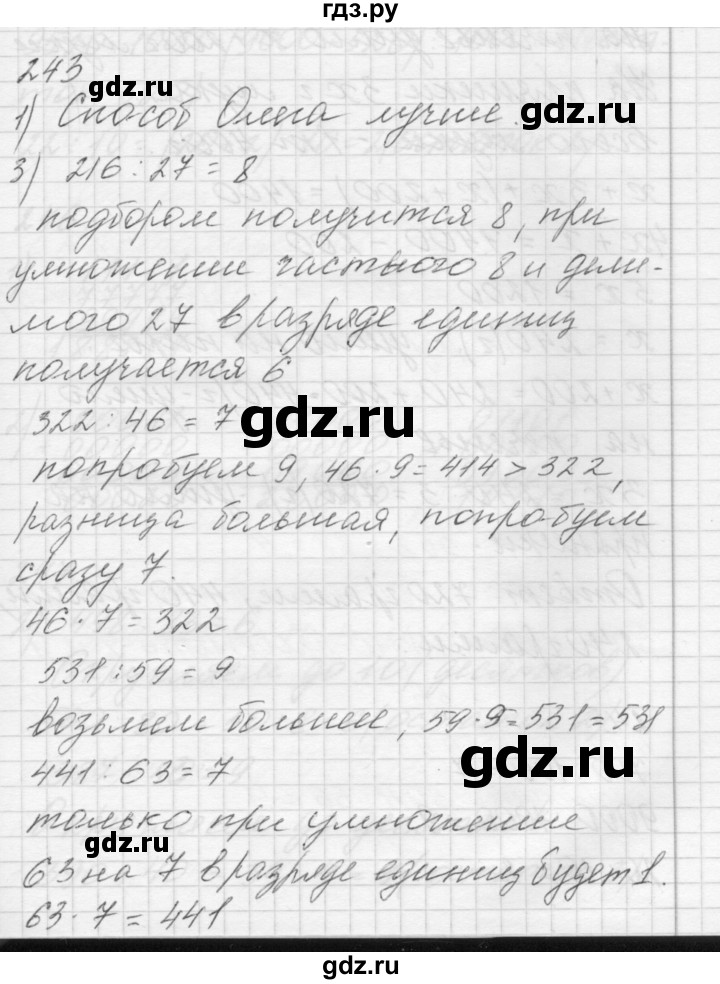 гдз.ру
243
gdz.ru
1) Способ Олега лучше.
gdz.ru
3) 216 : 27 = 8
подбором получится 8, при
умножении частного 8 и дели-
мого 27 в разряде единиц
получается 6
322 : 46 = 7
gdz.ru
попробуем 9, 46 · 9 = 414 > 322,
разница большая, попробуем
сразу 7.
46 · 7 = 322
531 : 59 = 9
возьмем большее, 59 · 9 = 531 = 531
441 : 63 = 7
gdz.ru
только при умножение
gdz.ru
63 на 7 в разряде единиц будет 1.
63 · 7 = 441
gdz.ru